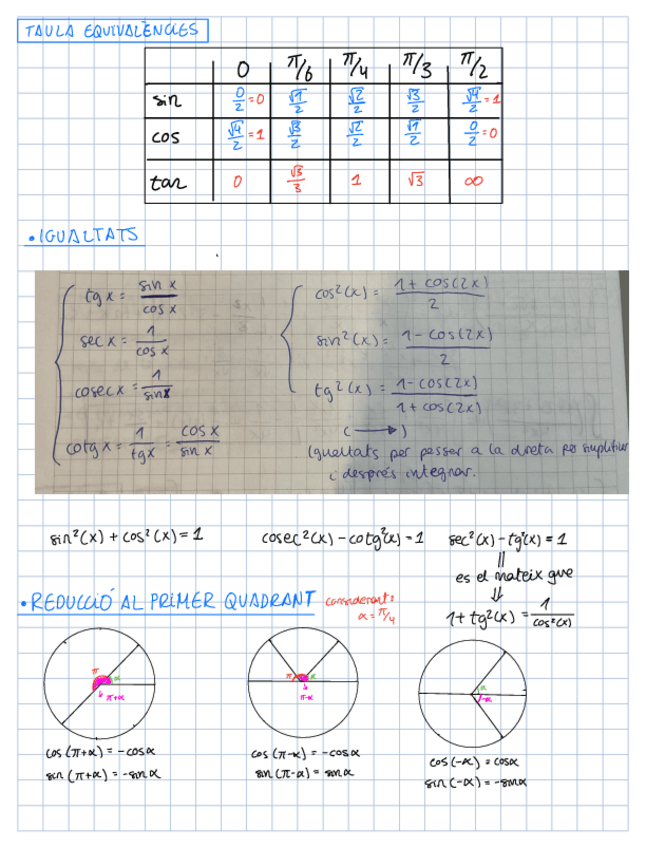 TAULA EQUIVALÈNCIES
0 π/6 π/4 π/3 π/2
sin 0/2 = 0 √1/2 √2/2 √3/2 √4/2 = 1
cos √4/2 = 1 √3/2 √2/2 √1/2 0/2 = 0
tan 0 √3/3 1 √3 ∞
• IGUALTATS
tg x = sin x / cos x
sec x = 1 / cos x
cosec x = 1 / sin x
cotg x = 1 / tg x = cos x / sin x
cos²(x) = 1 + cos(2x) / 2
sin²(x) = 1 - cos(2x) / 2
tg²(x) = 1 - cos(2x) / 1 + cos(2x)
( → )
Igualtats per passer a la dreta per simplificar
i després integrar.
sin²(x) + cos²(x) = 1
cosec²(x) - cotg²(x) = 1
sec²(x) - tg²(x) = 1
es el mateix que
1 + tg²(x) = 1 / cos²(x)
• REDUCCIÓ AL PRIMER QUADRANT
considerant:
α = π/4
π α
π+α
cos(π+α) = -cosα
sin(π+α) = -sinα
π α
π-α
cos(π-α) = -cosα
sin(π-α) = sinα
α
-α
cos(-α) = cosα
sin(-α) = -sinα